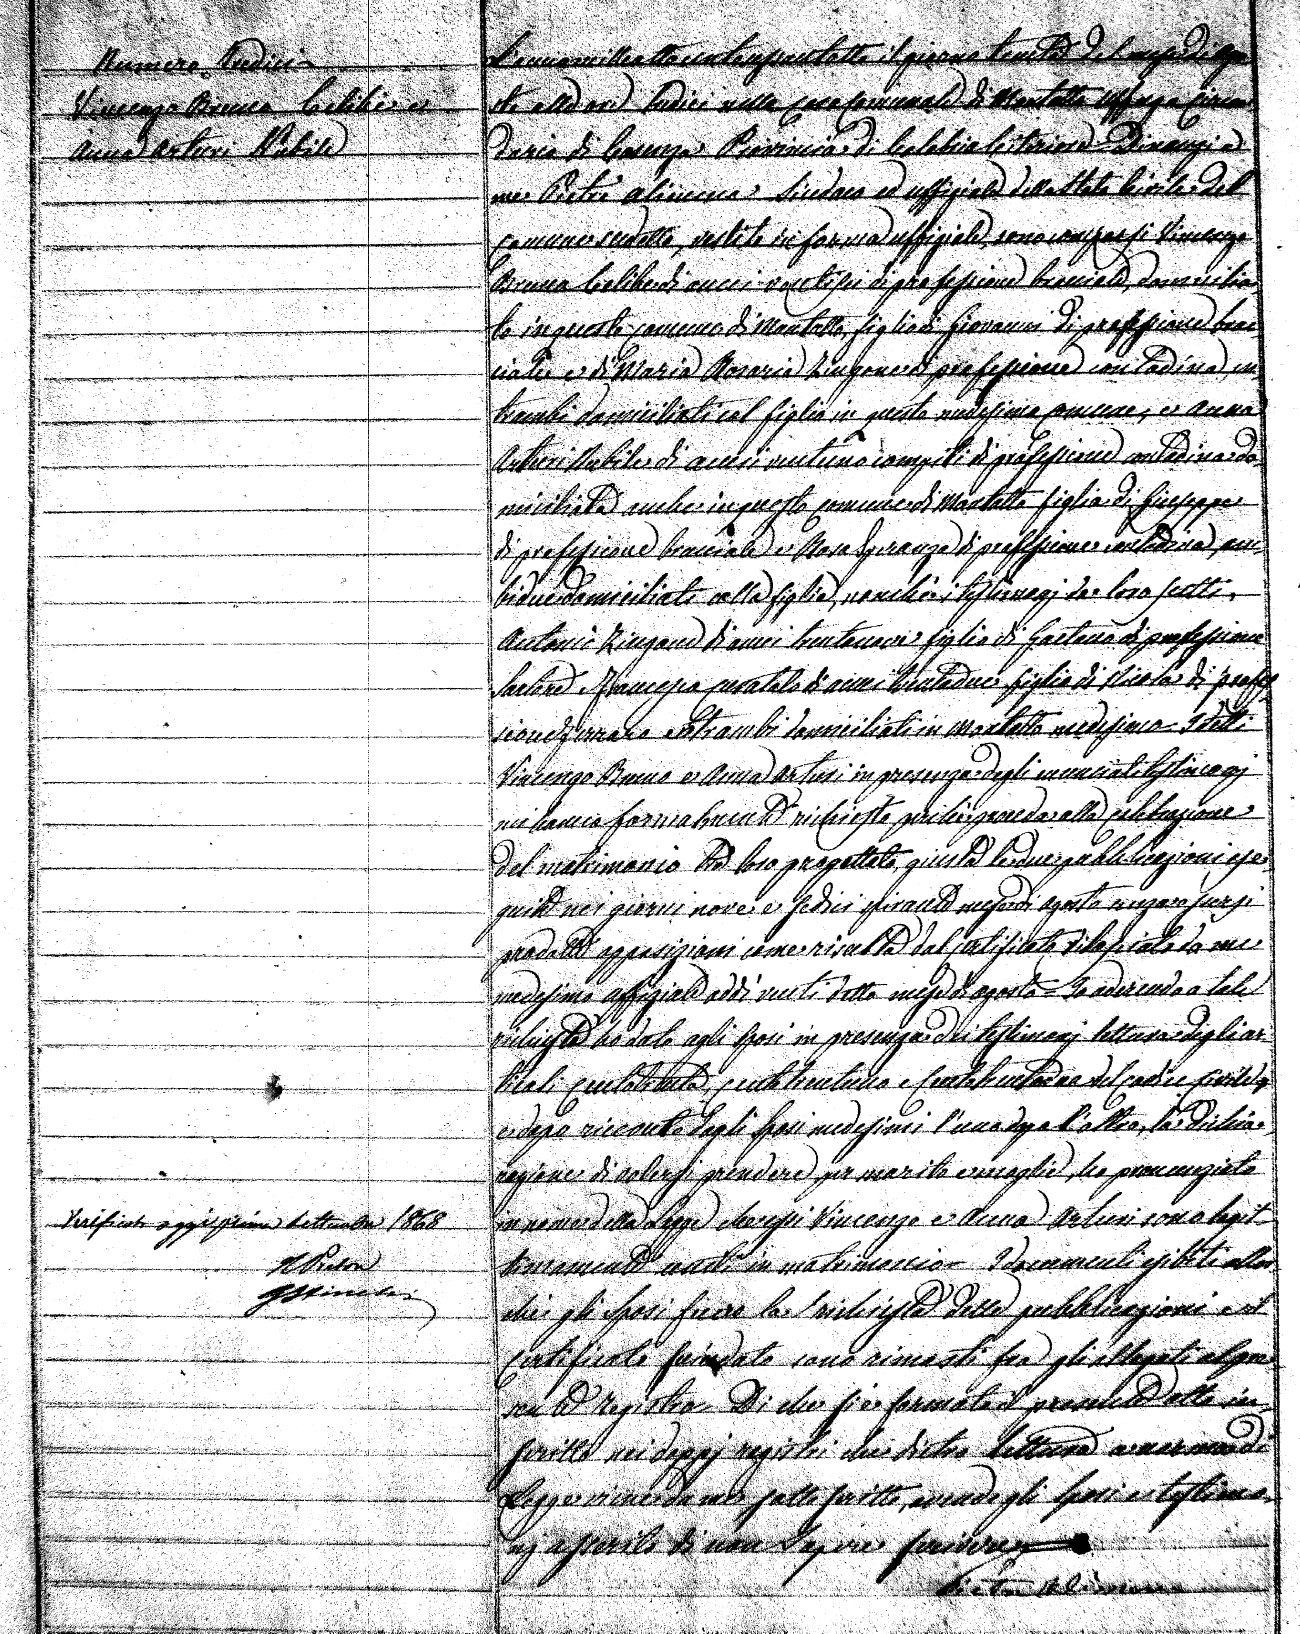 Numero Tredici
Vincenzo Bruno Celibe e
Anna Arturi Nubile
L'anno mille ottocentosessantotto il giorno trenta del mese di Ago
sto alle ore tredici nella casa Comunale di Montalto Uffugo Circon
dario di Cosenza Provincia di Calabria Citeriore Dinanzi a
me Pietro Alimena Sindaco ed uffiziale dello Stato Civile del
comune suddetto, vestito in forma uffiziale, sono comparsi Vincenzo
Bruno Celibe di anni ventisei di professione bracciale, domicilia
to in questo comune di Montalto, figlio di Giovanni di professione brac
ciale e di Maria Rosaria Zingone di professione contadina, en
trambi domiciliati col figlio in questo medesimo comune, e Anna
Arturi Nubile di anni ventuno compiti di professione contadina do
miciliata anche in questo comune di Montalto figlia di Giuseppe
di professione bracciale e Rosa Speranza di professione contadina, am
bidue domiciliati colla figlia, nonché i testimonj da loro scelti,
Antonio Zingone di anni trentanove figlio di Gaetano di professione
sartore e Francesco di anni trentadue figlio di Nicola di profes
sione entrambi domiciliati in Montalto medesimo I detti
Vincenzo Bruno e Anna Arturi in presenza degli enunciati testimonj
mi hanno formalmente richiesto perché proceda alla celebrazione
del matrimonio tra loro progettato, giusta le due pubblicazioni ese
guite nei giorni nove e sedici spirante mese di agosto senza essersi
prodotte opposizioni come risulta dal certificato rilasciato da me
medesimo uffiziale addì venti detto mese di agosto = Io aderendo a tale
richiesta ho dato agli sposi in presenza dei testimonj lettura degli ar
ticoli centotrenta, centotrentuno e centotrentadue del codice civile
e dopo ricevuto dagli sposi medesimi l'una dopo l'altra, la dichia
razione di volersi prendere per marito e moglie, ho pronunziato
in nome della Legge che essi Vincenzo e Anna Arturi sono legit
timamente uniti in matrimonio I documenti esibiti allor
ché gli sposi fecero la richiesta delle pubblicazioni e il
certificato suindato sono rimasti fra gli allegati al pre
sente registro Di che si è formato il presente atto in
scritto nei doppj registri che dietro lettura a norma di
Legge viene da me sottoscritto, avendo gli sposi e testimo
nj asserito di non sapere scrivere
Pietro Alimena
Verificato oggi primo Settembre 1868
Il Pretore